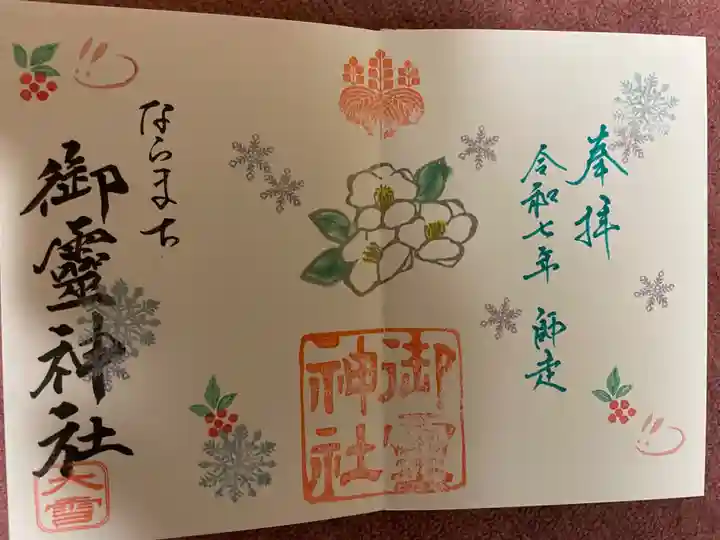 奉拝
令和七年 師走
御靈
神社
ならまち
御靈神社
大雪